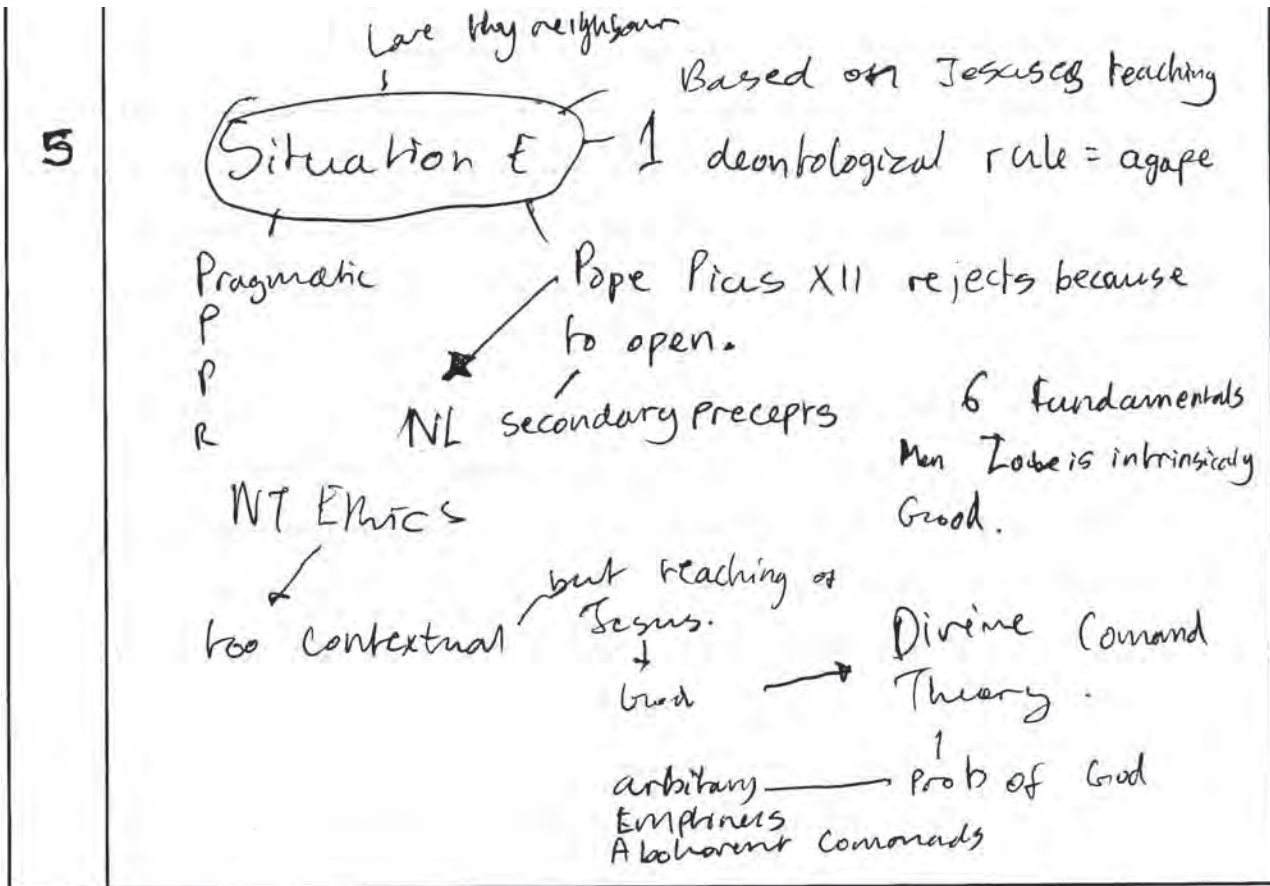 Love thy neighbour
5
Situation E.
Based on Jesuses teaching
1 deontological rule = agape
Pragmatic
P
P
R
Pope Pius XII rejects because
to open.
NL secondary precepts
6 Fundamentals
Love is intrinsicaly
Good.
NT Ethics
too contextual
but teaching of
Jesus.
God
Divine Comand
Theory.
Prob of God
arbitary
Emptiness
Abohorent comonads